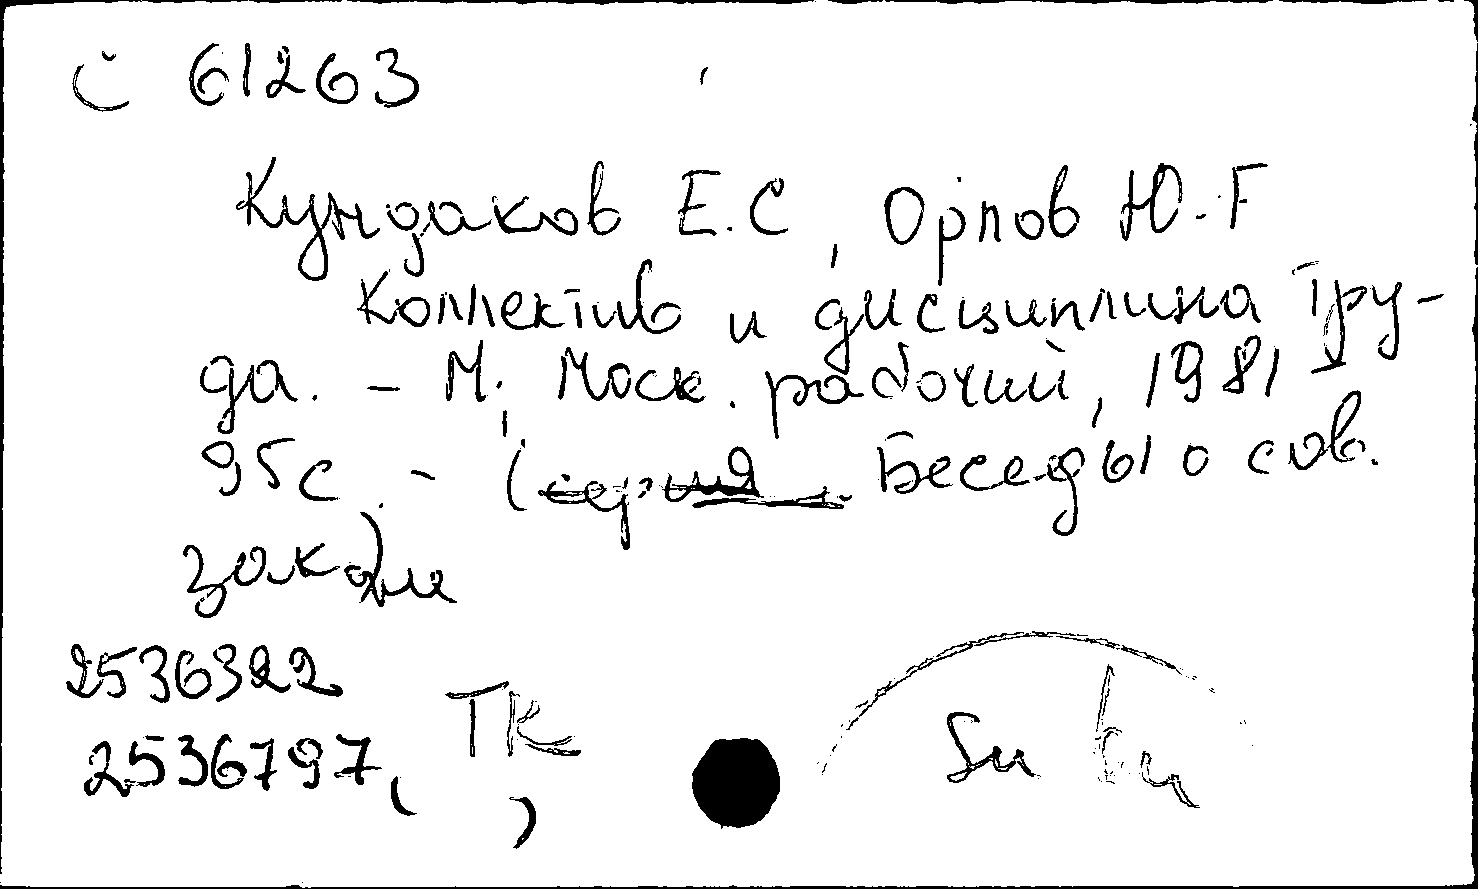 С 61263
Кундаков Е.С, Орлов Ю.Г
Коллектив и дисциплина тру-
да. - М, Моск. рабочий, 1981
95с. - (серия Беседы о сов.
законе)
2536322
2536797, ТК